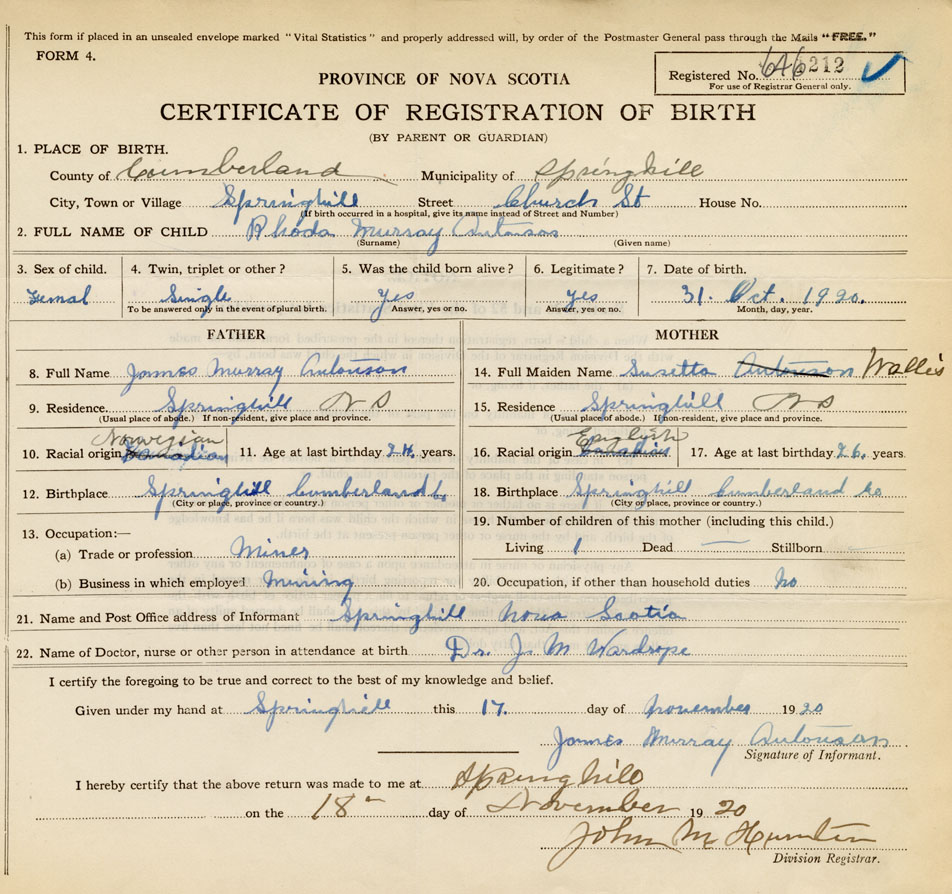 This form if placed in an unsealed envelope marked "Vital Statistics" and properly addressed will, by order of the Postmaster General pass through the Mails "FREE."
FORM 4.
Registered No. 646212
For use of Registrar General only.
PROVINCE OF NOVA SCOTIA
CERTIFICATE OF REGISTRATION OF BIRTH
(BY PARENT OR GUARDIAN)
1. PLACE OF BIRTH.
County of Cumberland Municipality of Springhill
City, Town or Village Springhill Street Church St House No.
(If birth occurred in a hospital, give its name instead of Street and Number)
2. FULL NAME OF CHILD Rhoda Murray
(Surname) (Given name)
3. Sex of child. 4. Twin, triplet or other? 5. Was the child born alive? 6. Legitimate? 7. Date of birth.
Femal Single Yes Yes 31. Oct. 1920.
To be answered only in the event of plural birth. Answer, yes or no. Answer, yes or no. Month, day, year.
FATHER MOTHER
8. Full Name James Murray Antonson 14. Full Maiden Name Susetta Antonson Wallis
9. Residence. Springhill N S 15. Residence Springhill N S
(Usual place of abode.) If non-resident, give place and province. (Usual place of abode.) If non-resident, give place and province.
Norwegian English
10. Racial origin Canadian 11. Age at last birthday 24. years. 16. Racial origin Canadian 17. Age at last birthday 26. years.
12. Birthplace Springhill Cumberland Co 18. Birthplace Springhill Cumberland Co
(City or place, province or country.) (City or place, province or country.)
13. Occupation:— 19. Number of children of this mother (including this child.)
(a) Trade or profession Miner Living 1 Dead — Stillborn
(b) Business in which employed Mining 20. Occupation, if other than household duties No
21. Name and Post Office address of Informant Springhill Nova Scotia
22. Name of Doctor, nurse or other person in attendance at birth Dr. J. M Wardrope
I certify the foregoing to be true and correct to the best of my knowledge and belief.
Given under my hand at Springhill this 17. day of November 1920
James Murray Antonson
Signature of Informant.
I hereby certify that the above return was made to me at Springhill
on the 18 day of November 1920
John M Hunter
Division Registrar.